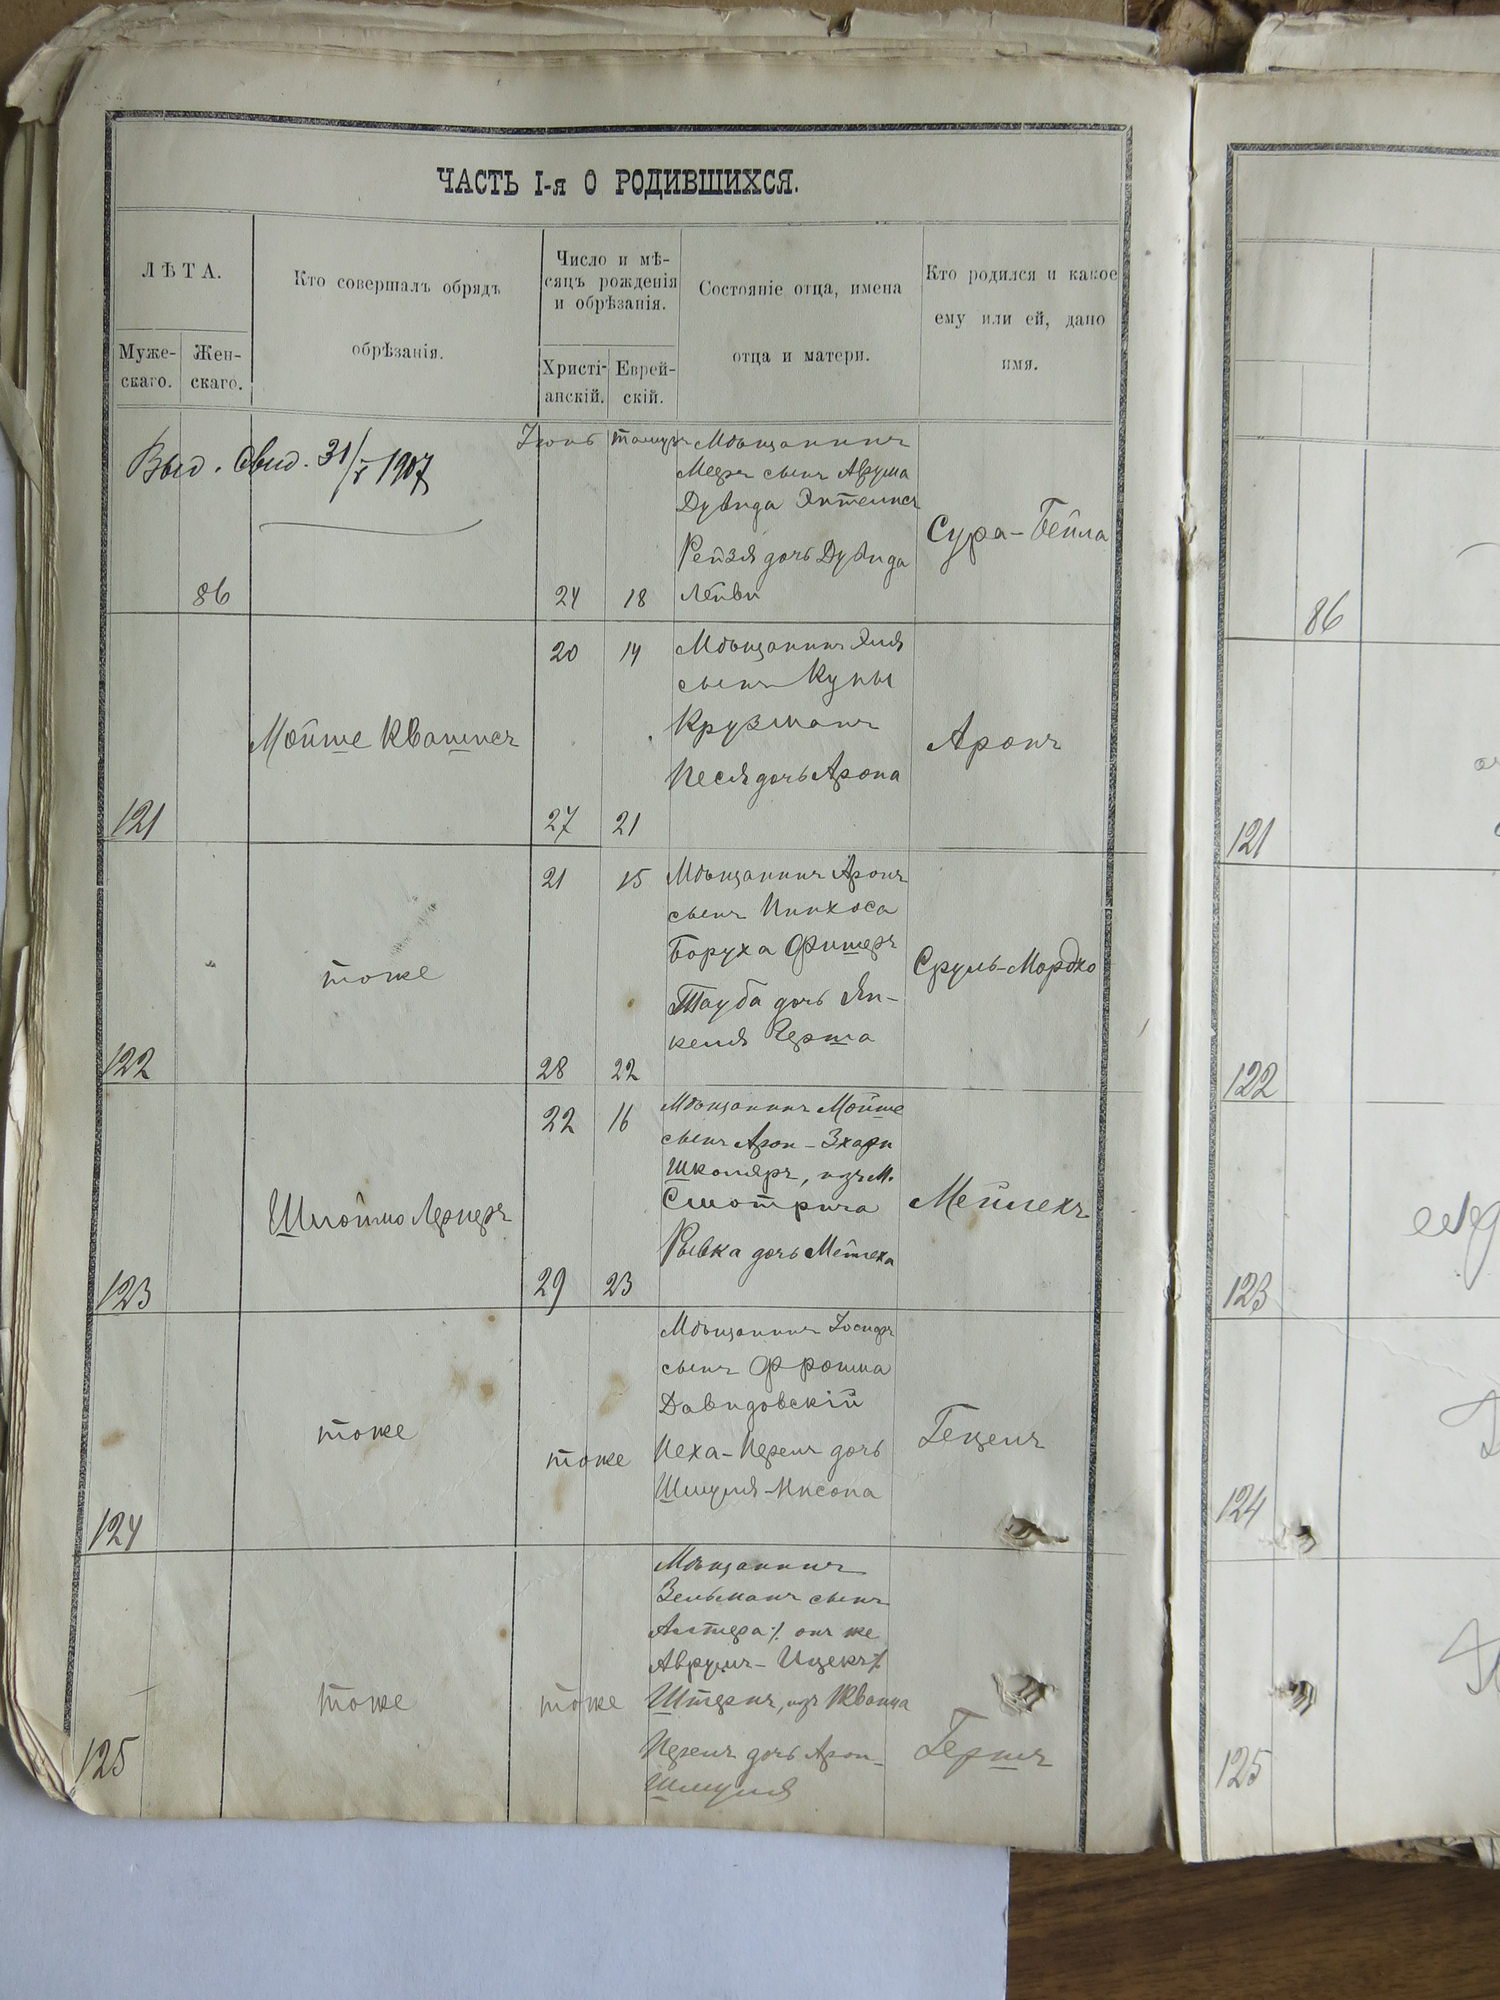 ЧАСТЬ I-я О РОДИВШИХСЯ.
ЛѢТА.
Муже-
скаго.
Жен-
скаго.
Кто совершалъ обрядъ
обрѣзанія.
Число и мѣ-
сяцъ рожденія
и обрѣзанія.
Христі-
анскій.
Еврей-
скій.
Состояніе отца, имена
отца и матери.
Кто родился и какое
ему или ей, дано
имя.
Выд. Свид. 31/V 1907
86
Іюнь
24
18
Мѣщанинъ
Мееръ сынъ Аврума
Дувида
Рейзя дочь Дувида
Лейви
Сура-Бейла
121
Мойше Квашнеръ
20 14
27 21
Мѣщанинъ Эля
сынъ Куны
Крузманъ
Песя дочь Арона
Аронъ
122
тоже
21 15
28 22
Мѣщанинъ Аронъ
сынъ Пинхоса
Боруха Фишеръ
Тауба дочь Ян-
келя Герша
Сруль-Мордко
123
Шлоймо Лернеръ
22 16
29 23
Мѣщанинъ Мойше
сынъ Арон-
Школяръ, изъ м.
Смотрича
Рывка дочь Мейлеха
Мейлехъ
124
тоже
тоже
Мѣщанинъ
сынъ Фроима
Давидовскій
Неха-Перель дочь
Шмуля-Нисона
Гецель
125
тоже
тоже
Мѣщанинъ
Зельманъ сынъ
Алтера ./. онъ же
Аврумъ-Ицекъ ./.
Штернъ, изъ Жванца
Перель дочь Арон-
Шмуля
Гершъ
86
121
122
123
124
125